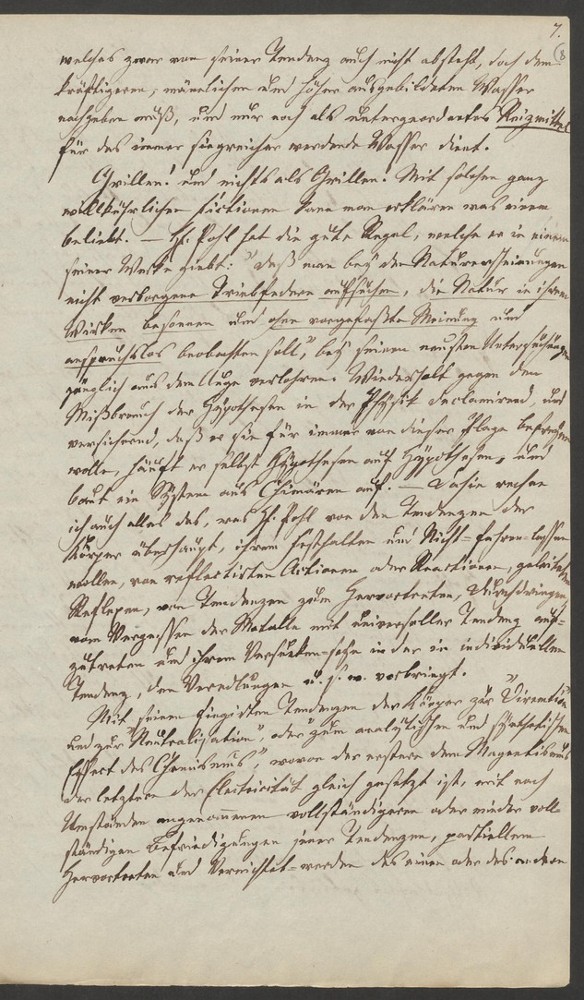 7.
8
welches zwar von seiner Tendenz auch nicht absteht, doch dem
kräftigeren, männlichen und höher ausgebildeten Wasser
nachgeben muß, und nur noch als untergeordnetes Reizmittel
für das immer siegreicher werdende Wasser dient.
Grillen! und nichts als Grillen! Mit solchen ganz
willkührlichen fictionen kann man erklären was einem
beliebt. — H. Pohl hat die gute Regel, welche er in einem
seiner Werke giebt: "daß man bey den Naturerscheinungen
nicht verborgene Triebfedern aufsuchen, die Natur in ihrem
Wirken besonnen und ohne vorgefaßte Meinung und
anspruchslos beobachten soll", bey seinen neuesten Untersuchungen
gänzlich aus dem Auge verlohren. Wiederholt gegen den
Mißbrauch der Hypothesen in der Physik declamirend, und
versichernd, daß er sie für immer von dieser Plage befreyen
wolle, häuft er selbst Hypothesen auf Hypothesen, und
baut ein System aus Chimären auf. — Dahin rechne
ich auch alles das, was H. Pohl von den Tendenzen der
Körper überhaupt, ihrem Festhalten und Nicht-fahren-lassen
wollen, von reflectirten Actionen oder Reactionen,
Reflexen, von Tendenzen zum Hervortreten, Durchdringen,
vom Vergessen der Metalle mit universeller Tendenz auf-
zutreten und ihrem Versunken-seyn in der in individuellen
Tendenz, den Veredlungen u. s. w. vorbringt.
Mit seinen fingirten Tendenzen der Körper zur "
und zur "Neutralisation", oder "zum analytischen und synthetischen
Effect des Chemismus", wovon der erstere dem Magnetismus
der letztere der Electricität gleich gesetzt ist, mit nach
Umständen angenommenen vollständigeren oder minder voll-
ständigen Befriedigungen jener Tendenzen, partiellem
Hervortreten und Vernichtet-werden des einen oder des andern